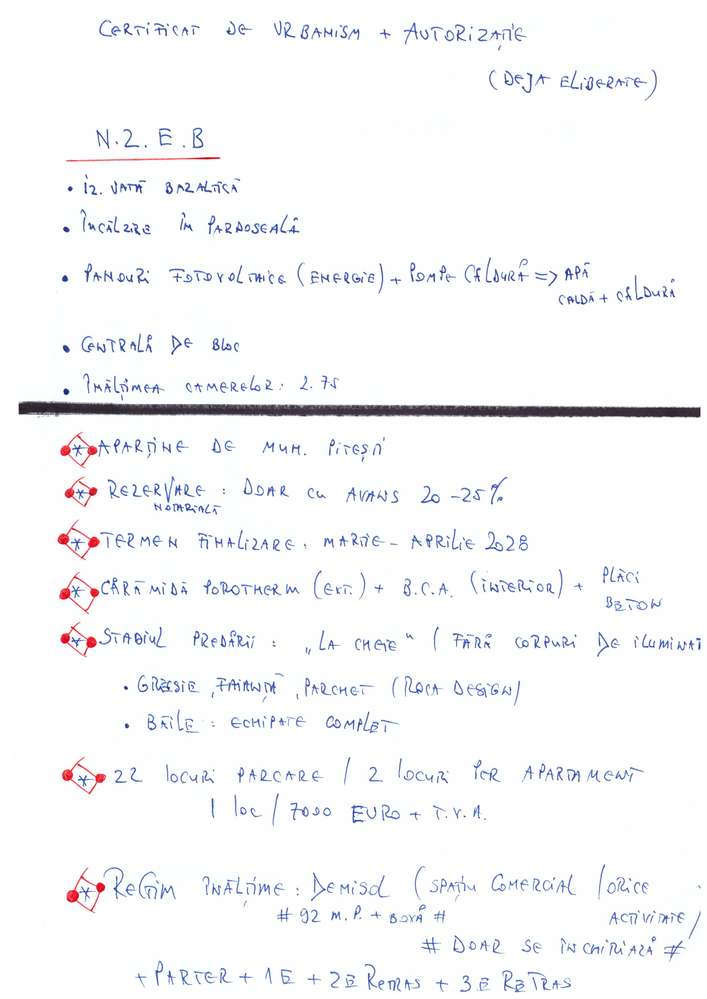 CERTIFICAT DE URBANISM + AUTORIZAȚIE
(DEJA ELIBERATE)
N.Z.E.B
• IZ. VATĂ BAZALTICĂ
• ÎNCĂLZIRE ÎN PARDOSEALĂ
• PANOURI FOTOVOLTAICE (ENERGIE) + POMPE CĂLDURĂ => APĂ
CALDĂ + CĂLDURĂ
• CENTRALĂ DE BLOC
• ÎNĂLȚIMEA CAMERELOR: 2.75
* APARȚINE DE MUN. PITEȘTI
* REZERVARE : DOAR CU AVANS 20-25%
NOTARIALĂ
* TERMEN FINALIZARE: MARTIE - APRILIE 2028
* CĂRĂMIDĂ POROTHERM (EXT.) + B.C.A. (INTERIOR) + PLĂCI
BETON
* STADIUL PREDĂRII : „LA CHEIE" / FĂRĂ CORPURI DE ILUMINAT
• GRESIE, FAIANȚĂ, PARCHET (ROCA DESIGN)
• BĂILE : ECHIPATE COMPLET
* 22 LOCURI PARCARE / 2 LOCURI PER APARTAMENT
1 LOC / 7000 EURO + T.V.A.
* REGIM ÎNĂLȚIME : DEMISOL (SPAȚIU COMERCIAL / ORICE
# 92 M.P. + BOXĂ # ACTIVITATE /
# DOAR SE ÎNCHIRIAZĂ #
+ PARTER + 1E + 2E RETRAS + 3E RETRAS